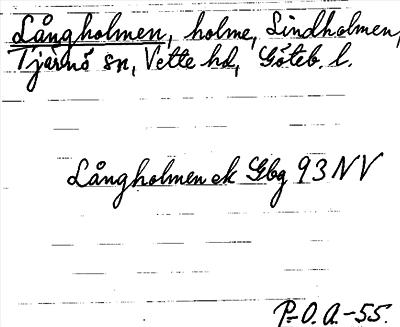 Långholmen, holme, Lindholmen,
Tjärnö sn, Vette hd, Göteb. l.
Långholmen ek Gbg 93 NV
P-O. A.-55.